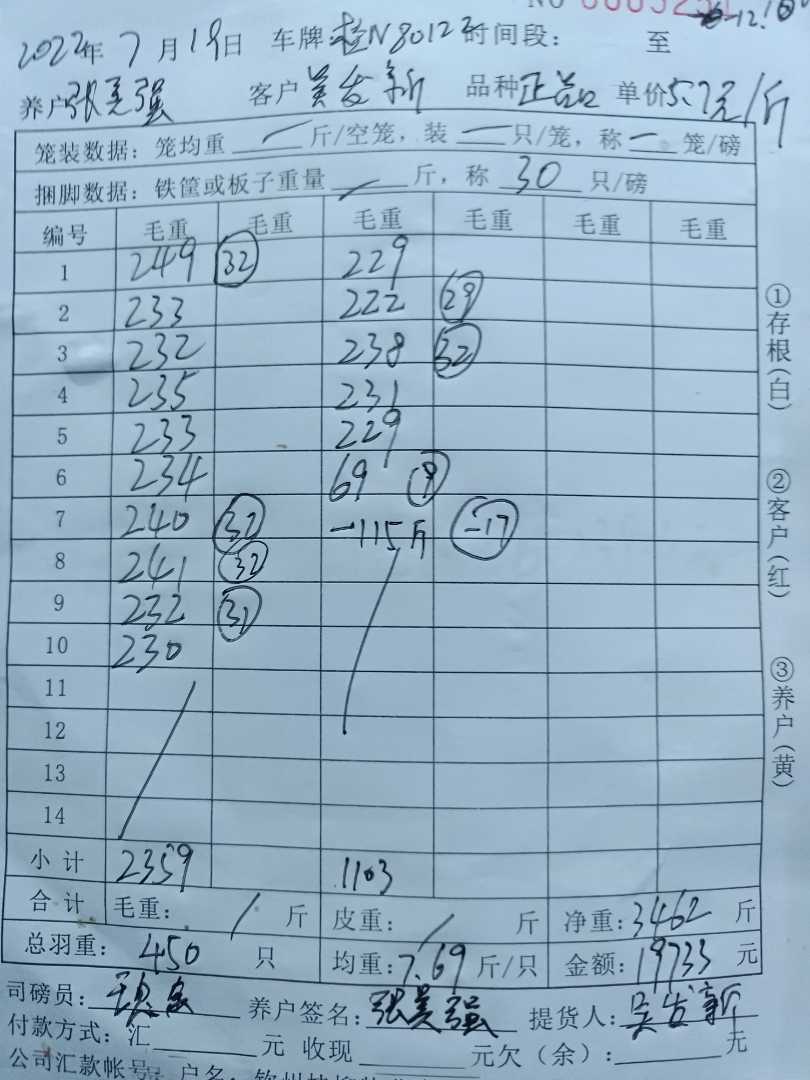 NO
2022年7月19日 车牌:桂N80122时间段: 至
养户 张美强 客户 吴发新 品种 正品 单价5.7元/斤
笼装数据:笼均重 斤/空笼,装 只/笼,称 笼/磅
捆脚数据:铁筐或板子重量 斤,称 30 只/磅
编号 毛重 毛重 毛重 毛重 毛重 毛重
1 249 32 229
2 233 222 29
3 232 238 32
4 235 231
5 233 229
6 234 69 9
7 240 -115斤 -17
8 241 32
9 232 31
10 230
11
12
13
14
小计 2359 1103
合计 毛重: 斤 皮重: 斤 净重:3462斤
总羽重:450只 均重:7.69斤/只 金额:19733元
司磅员: 养户签名:张美强 提货人:吴发新
付款方式:汇 元 收现 元欠(余): 元
公司汇款帐号 户名:钦州
①存根(白)
②客户(红)
③养户(黄)